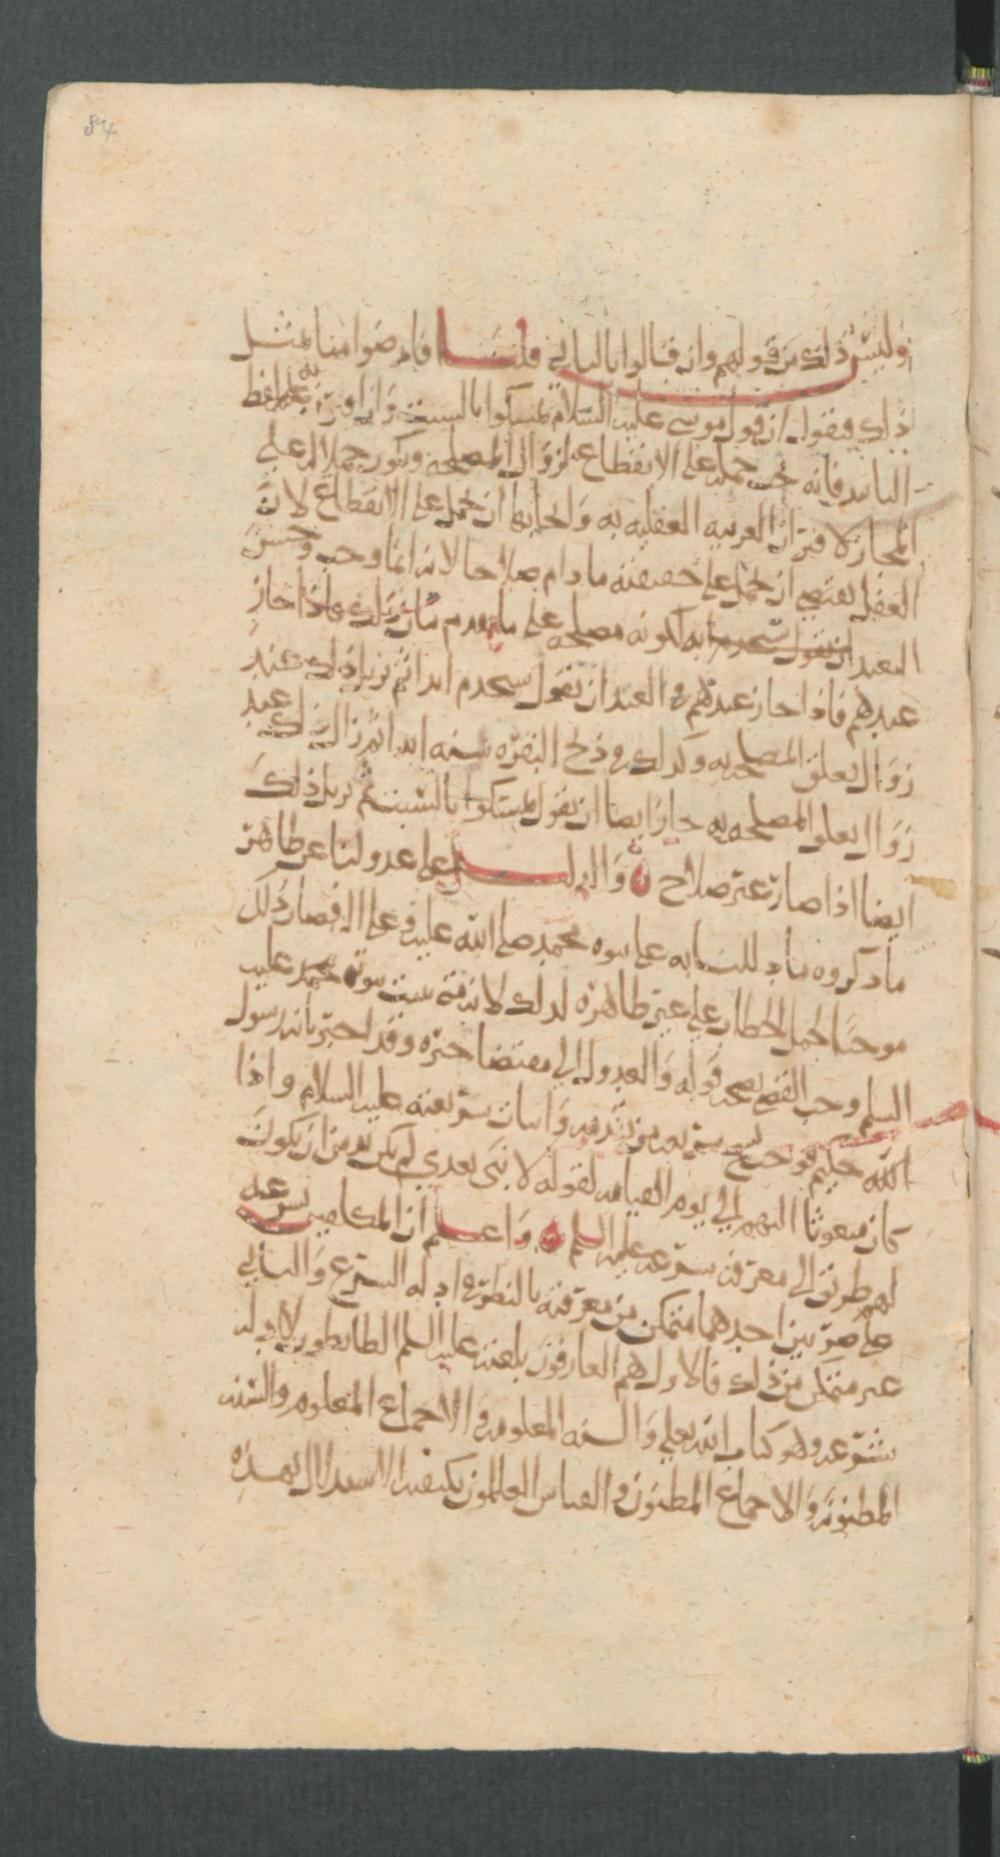 84
وليس ذلك من قولهم وان قالوا بالثاني قلنا فارضوا منا بمثل
ذلك فنقول ان قول موسى عليه السلام تمسكوا بالسبت وان اقترن به لفظ
التابيد فانه يجب حمله على الانقطاع لزوال المصلحة ويكون حملا له على
المجاز لاقتران القرينه العقليه به ولحانها ان يحمل على الانقطاع لان
العقل يقتضي ان يحمل على حقيقته ما دام صلاحا لانه انما وجب وحسن
التعبد به لكونه مصلحه على ما تقدم فاذا جاز
عندهم فاذا جاز عندهم في العبد ان يقول استخدم ابدا ثم يزيل ذلك عند
زوال تعلق المصلحه به وكذلك في ذبح البقره سنه ابدا ثم زال ذلك عند
زوال تعلق المصلحه به جاز ايضا ان يقول تمسكوا بالسبت ثم يزيل ذلك
ايضا اذا صار غير صلاح والدليل على عدولنا عن ظاهر
ما ذكروه ما دللنا به على نبوه محمد صلى الله عليه وعلى اله فصار ذلك
موجبا لحمل الخطاب على غير ظاهره لذلك لانه متى ثبت نبوة محمد عليه
السلم وجب القطع بصحة قوله والعدول الى مقتضا خبره وقد اخبر بانه رسول
الله نسخ شريعه من تقدمه وابان شريعته عليه السلام واذا
كان مبعوثا اليهم الى يوم القيامه لقوله لا نبي بعدي لم يكن بد من ان يكون
لهم طريق الى معرفة شرعه عليه السلم واعلم ان المكلفين بشرعه
على ضربين احدهما متمكن من معرفته بالنظر في ادله الشرع والثاني
غير متمكن من ذلك فالاول هم العارفون بلغته عليه السلم الناظرون لادله
شرعه وهو كتاب الله تعلى والسنه المعلومه والاجماع المعلوم والسنه
المظنونه والاجماع المظنون والقياس العالمون بكيفيه الاستدلال بهذه